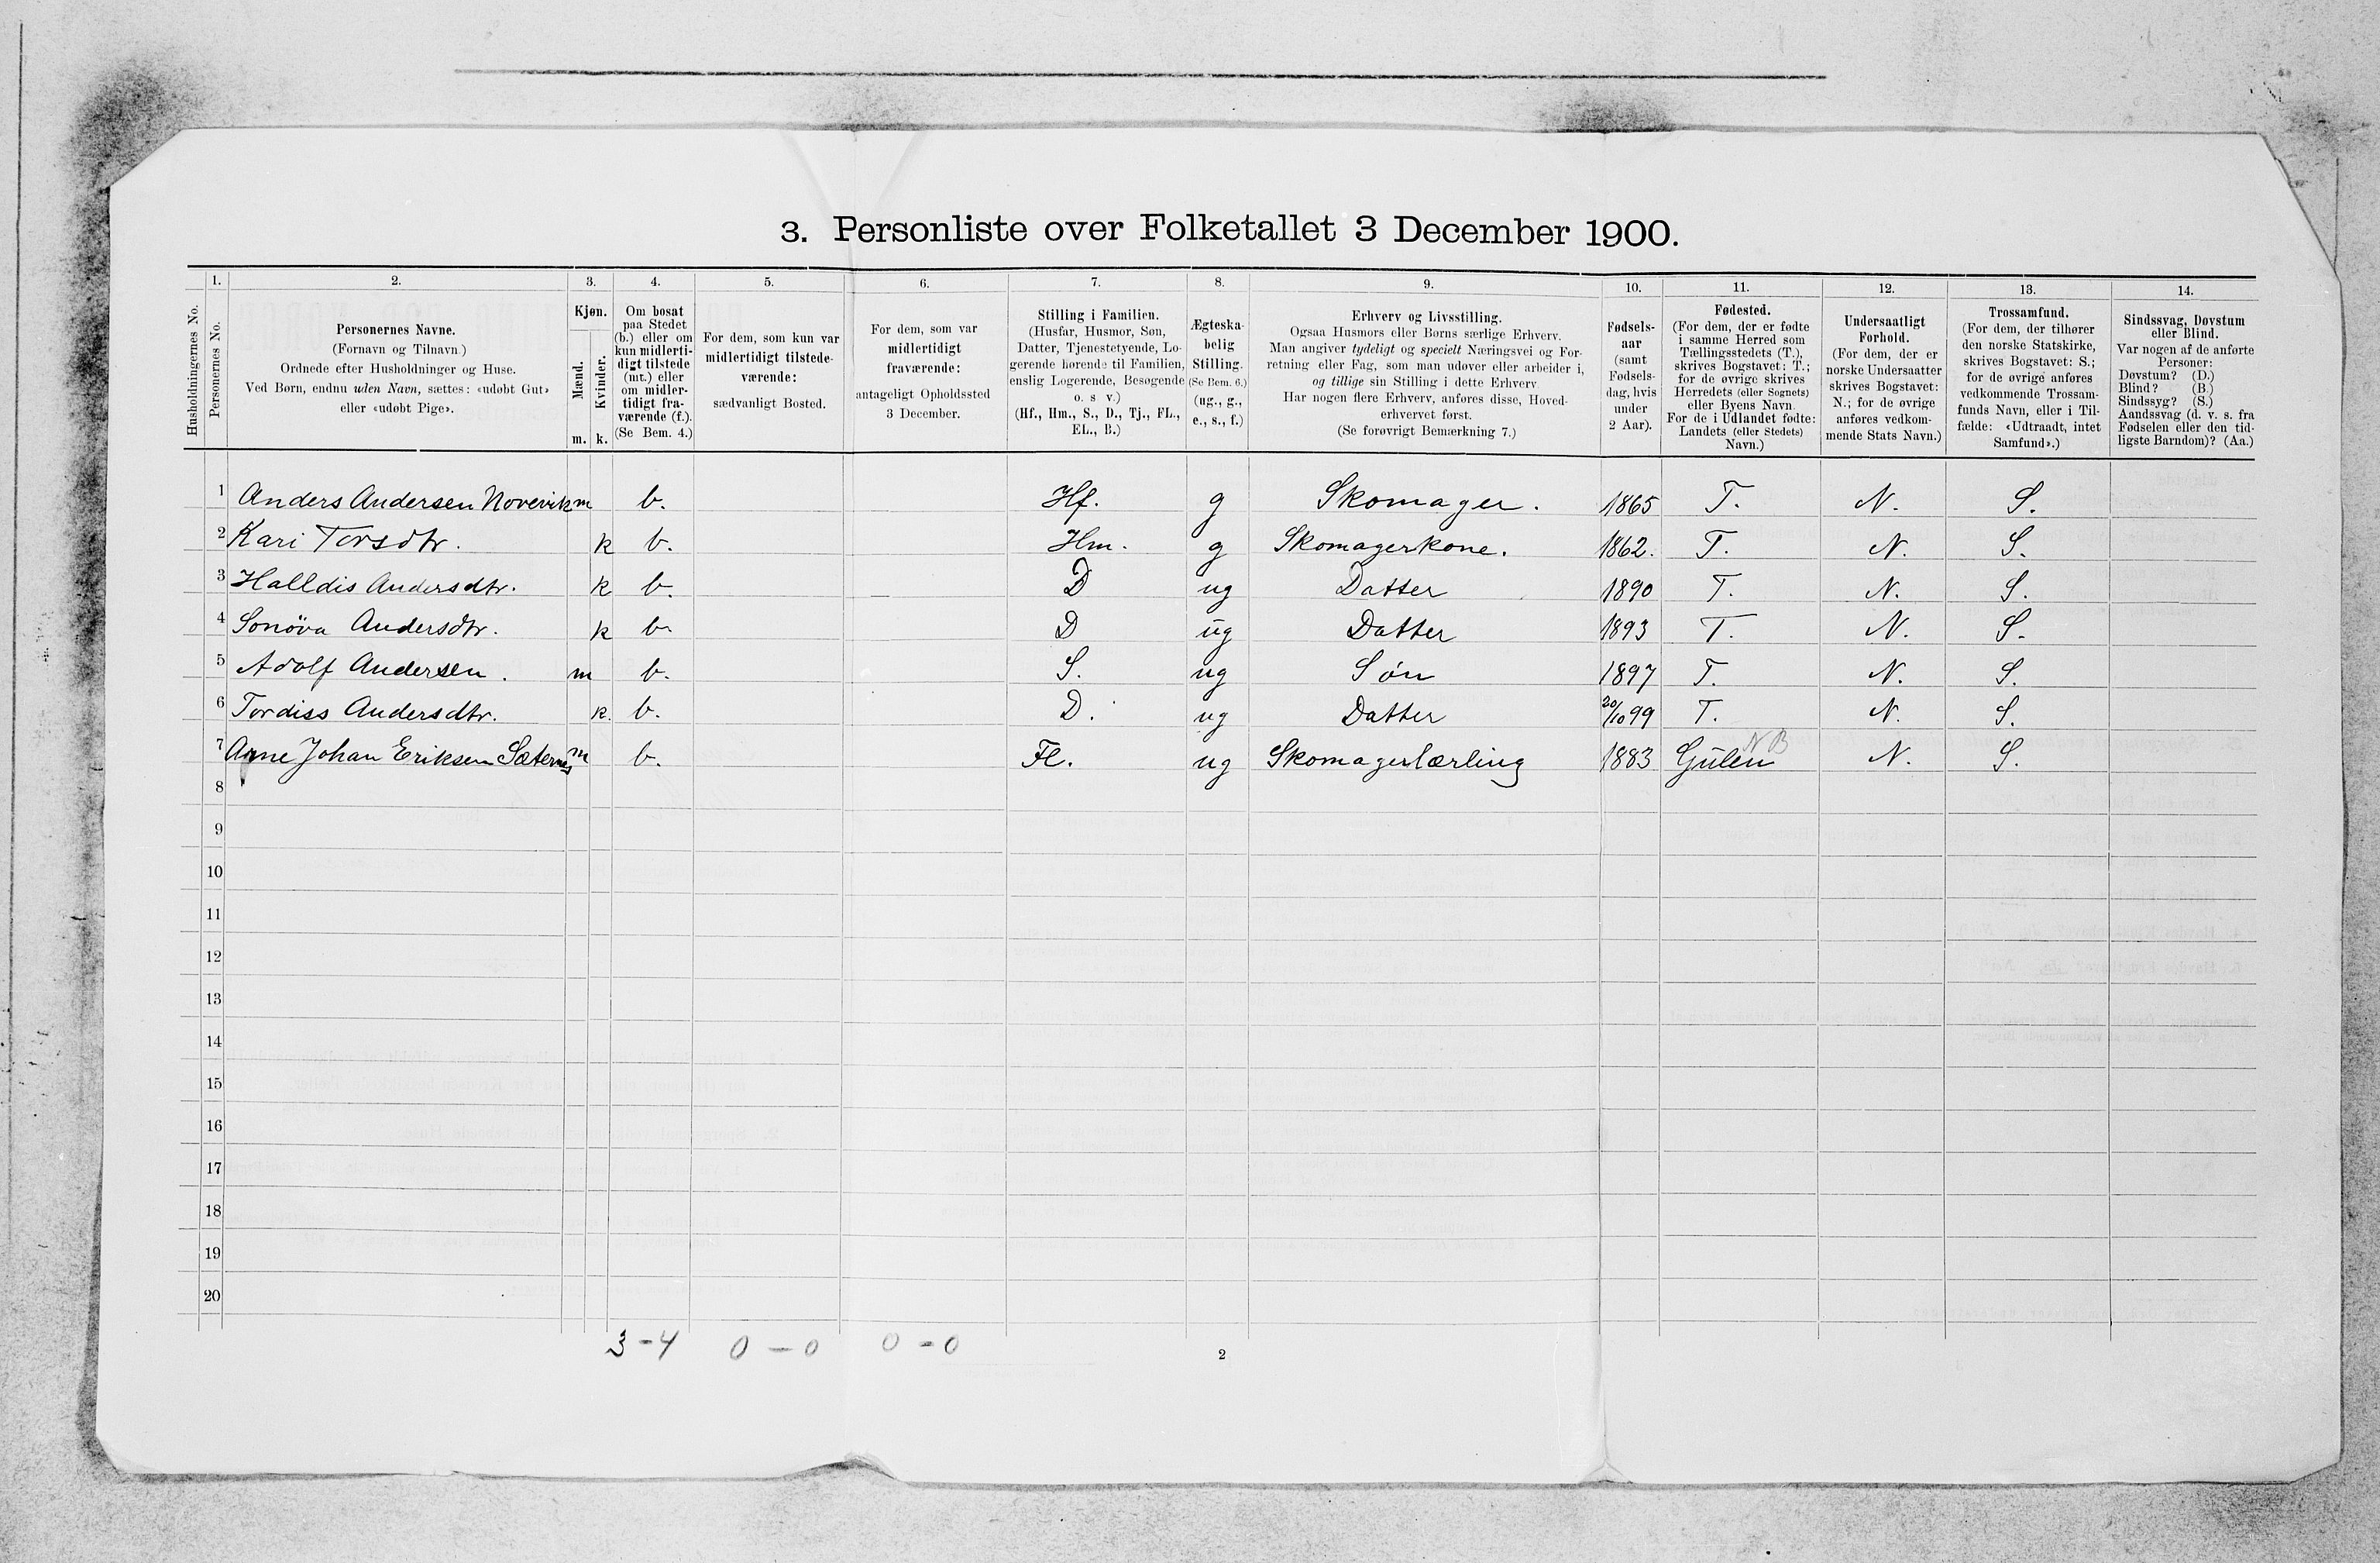 3. Personliste over Folketallet 3 December 1900.
Husholdningernes No.
1.
Personernes No.
2.
Personernes Navne.
(Fornavn og Tilnavn.)
Ordnede efter Husholdninger og Huse.
Ved Børn, endnu uden Navn, sættes: «udøbt Gut»
eller «udøbt Pige».
3.
Kjøn.
Mænd.
Kvinder.
m. k.
4.
Om bosat
paa Stedet
(b.) eller om
kun midlerti-
digt tilstede
(mt.) eller
om midler-
tidigt fra-
værende (f.).
(Se Bem. 4.)
5.
For dem, som kun var
midlertidigt tilstede-
værende:
sædvanligt Bosted.
6.
For dem, som var
midlertidigt
fraværende:
antageligt Opholdssted
3 December.
7.
Stilling i Familien.
(Husfar, Husmor, Søn,
Datter, Tjenestetyende, Lo-
gerende hørende til Familien,
enslig Logerende, Besøgende
o. s v.)
(Hf., Hm., S., D., Tj., FL.,
EL., B.)
8.
Ægteska-
belig
Stilling.
(Se Bem. 6.)
(ug., g.,
e., s., f.)
9.
Erhverv og Livsstilling.
Ogsaa Husmors eller Børns særlige Erhverv.
Man angiver tydeligt og specielt Næringsvei og For-
retning eller Fag, som man udøver eller arbeider i,
og tillige sin Stilling i dette Erhverv
Har nogen flere Erhverv, anføres disse, Hoved-
erhvervet først.
(Se forøvrigt Bemærkning 7.)
10.
Fødsels-
aar
(samt
Fødsels-
dag, hvis
under
2 Aar).
11.
Fødested.
(For dem, der er fødte
i samme Herred som
Tællingsstedets (T.),
skrives Bogstavet: T.;
for de øvrige skrives
Herredets (eller Sognets)
eller Byens Navn.
For de i Udlandet fødte:
Landets (eller Stedets)
Navn.)
12.
Undersaatligt
Forhold.
(For dem, der er
norske Undersaatter
skrives Bogstavet:
N.; for de øvrige
anføres vedkom-
mende Stats Navn.)
13.
Trossamfund.
(For dem, der tilhører
den norske Statskirke,
skrives Bogstavet: S.;
for de øvrige anføres
vedkommende Trossam-
funds Navn, eller i Til-
fælde: «Udtraadt, intet
Samfund».)
14.
Sindssvag, Døvstum
eller Blind.
Var nogen af de anførte
Personer:
Døvstum? (D.)
Blind? (B.)
Sindssyg? (S.)
Aandssvag (d. v. s. fra
Fødselen eller den tid-
ligste Barndom)? (Aa.)
1 Anders Andersen Novevik m b. Hf. g Skomager. 1865 T. N. S.
2 Kari Torsdtr. k b. Hm. g Skomagerkone. 1862. T. N. S.
3 Halldis Andersdtr. k b. D ug Datter 1890 T. N. S.
4 Sonöva Andersdtr. k b. D ug Datter 1893 T. N. S.
5 Adolf Andersen. m b. S. ug Søn 1897 T. N. S.
6 Tordiss Andersdtr. k. b. D. ug Datter 20/10 99 T. N. S.
7 Arne Johan Eriksen Sæternes m b. Fl. ug Skomagerlærling 1883 Gulen NB N. S.
8
9
10
11
12
13
14
15
16
17
18
19
20
3-4 0-0 0-0
2